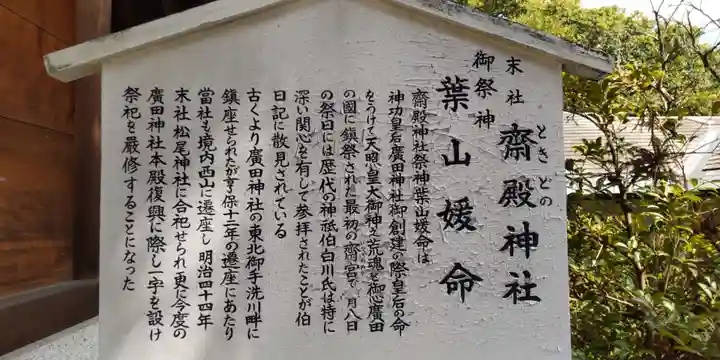 末社 齋殿神社
ときどの
御祭神
葉山媛命
齋殿神社祭神葉山媛命は
神功皇后廣田神社御創建の際皇后の命
をうけて天照皇大御神之荒魂を御心廣田
の國に鎮祭された最初の齋宮で一月八日
の祭日には歴代の神祇伯白川氏は特に
深い関心を有して参拝されたことが伯
日記に散見されている
古くより廣田神社の東北御手洗川畔に
鎮座せられたが享保十二年の遷座にあたり
當社も境内西山に遷座し明治四十四年
末社松尾神社に合祀せられ更に今度の
廣田神社本殿復興に際し一宇を設け
祭祀を厳修することになった